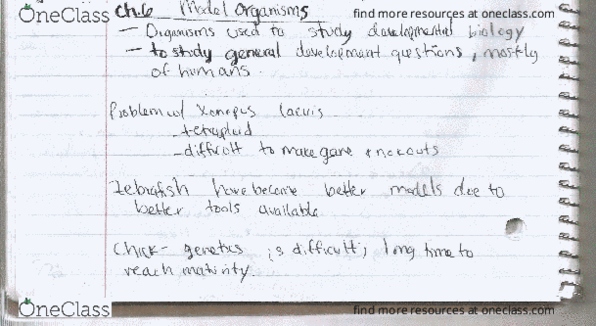 OneClass
find more resources at oneclass.com
Ch.6 Model Organisms
- Organisms used to study developmental biology
- to study general development questions, mostly
of humans.
Problem w/ Xenopus laevis
- tetraploid
- difficult to make gene knockouts
Zebrafish have become better models due to
better tools available
Chick - genetics is difficult; long time to
reach maturity.
OneClass
find more resources at oneclass.com